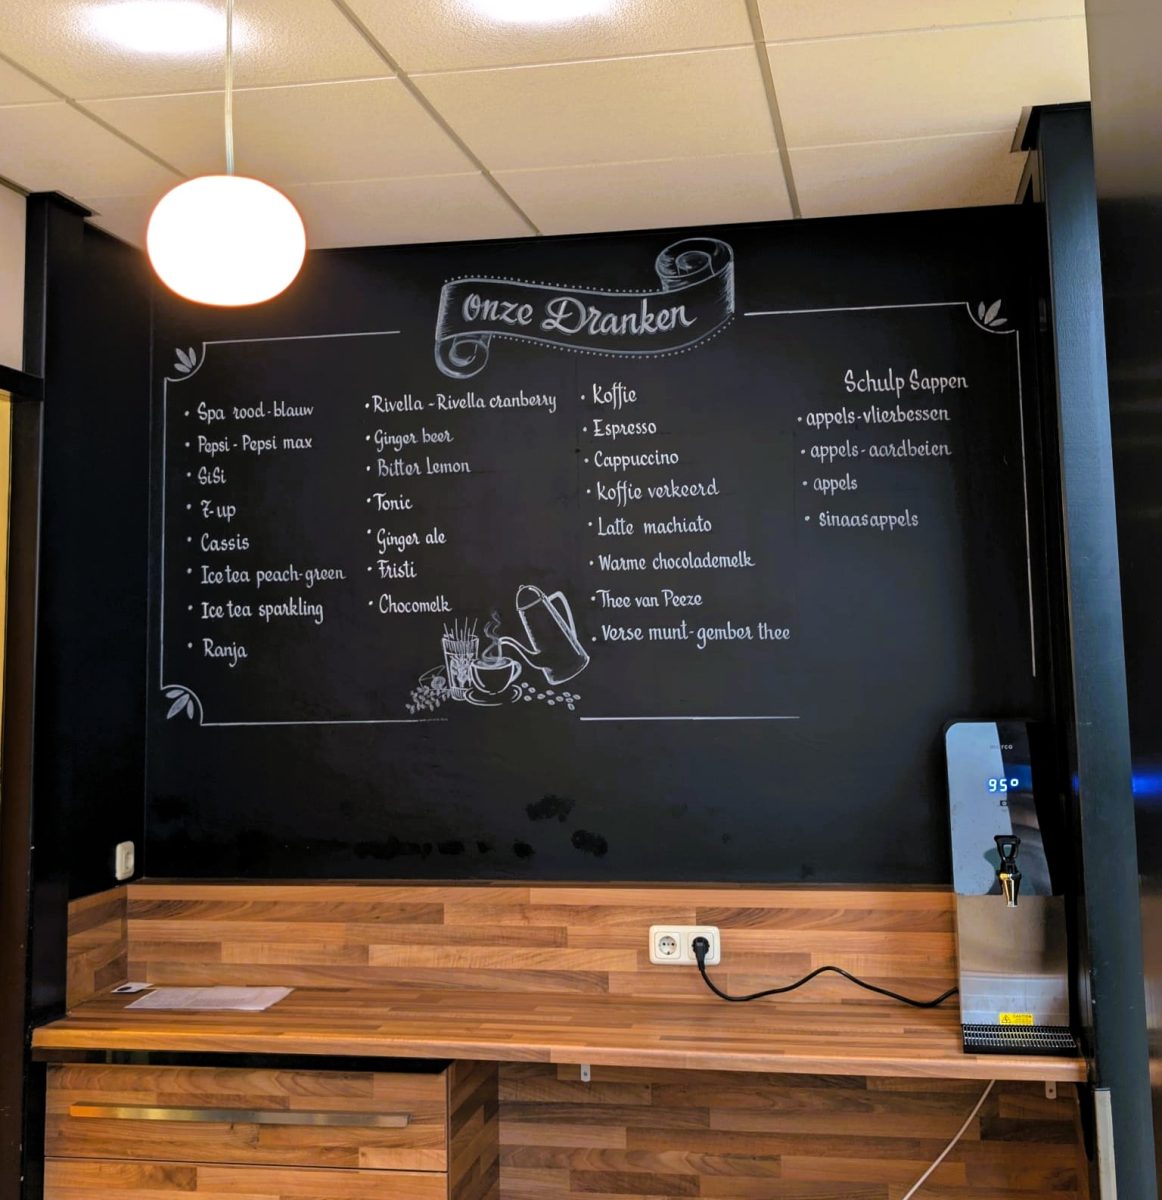 Onze Dranken
• Spa rood-blauw
• Pepsi - Pepsi max
• SiSi
• 7-up
• Cassis
• Ice tea peach-green
• Ice tea sparkling
• Ranja
• Rivella - Rivella cranberry
• Ginger beer
• Bitter Lemon
• Tonic
• Ginger ale
• Fristi
• Chocomelk
• Koffie
• Espresso
• Cappuccino
• Koffie verkeerd
• Latte machiato
• Warme chocolademelk
• Thee van Peeze
• Verse munt-gember thee
Schulp Sappen
• appels-vlierbessen
• appels-aardbeien
• appels
• sinaasappels
marco
95°
CAUTION